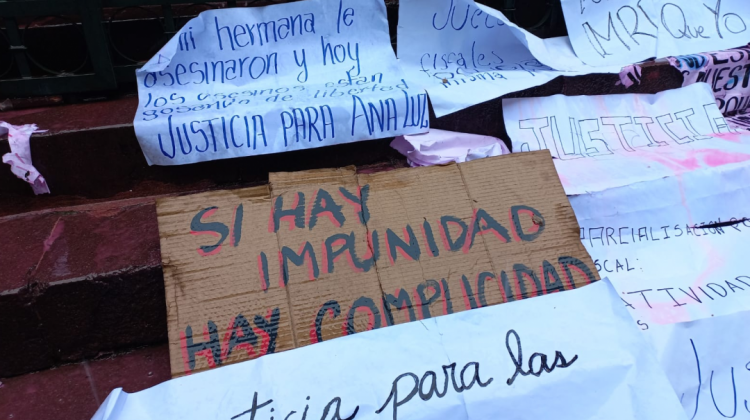 Mi hermana le
asesinaron y hoy
los asesinos están
gosando de libertad
JUSTICIA PARA ANA LUZ
Jue
fiscales
MI
Que Yo
JUSTICIA
SI HAY
IMPUNIDAD
HAY COMPLICIDAD
PARCIALISACION
SCAL:
ATIVIDAD
ticia para las
Jus